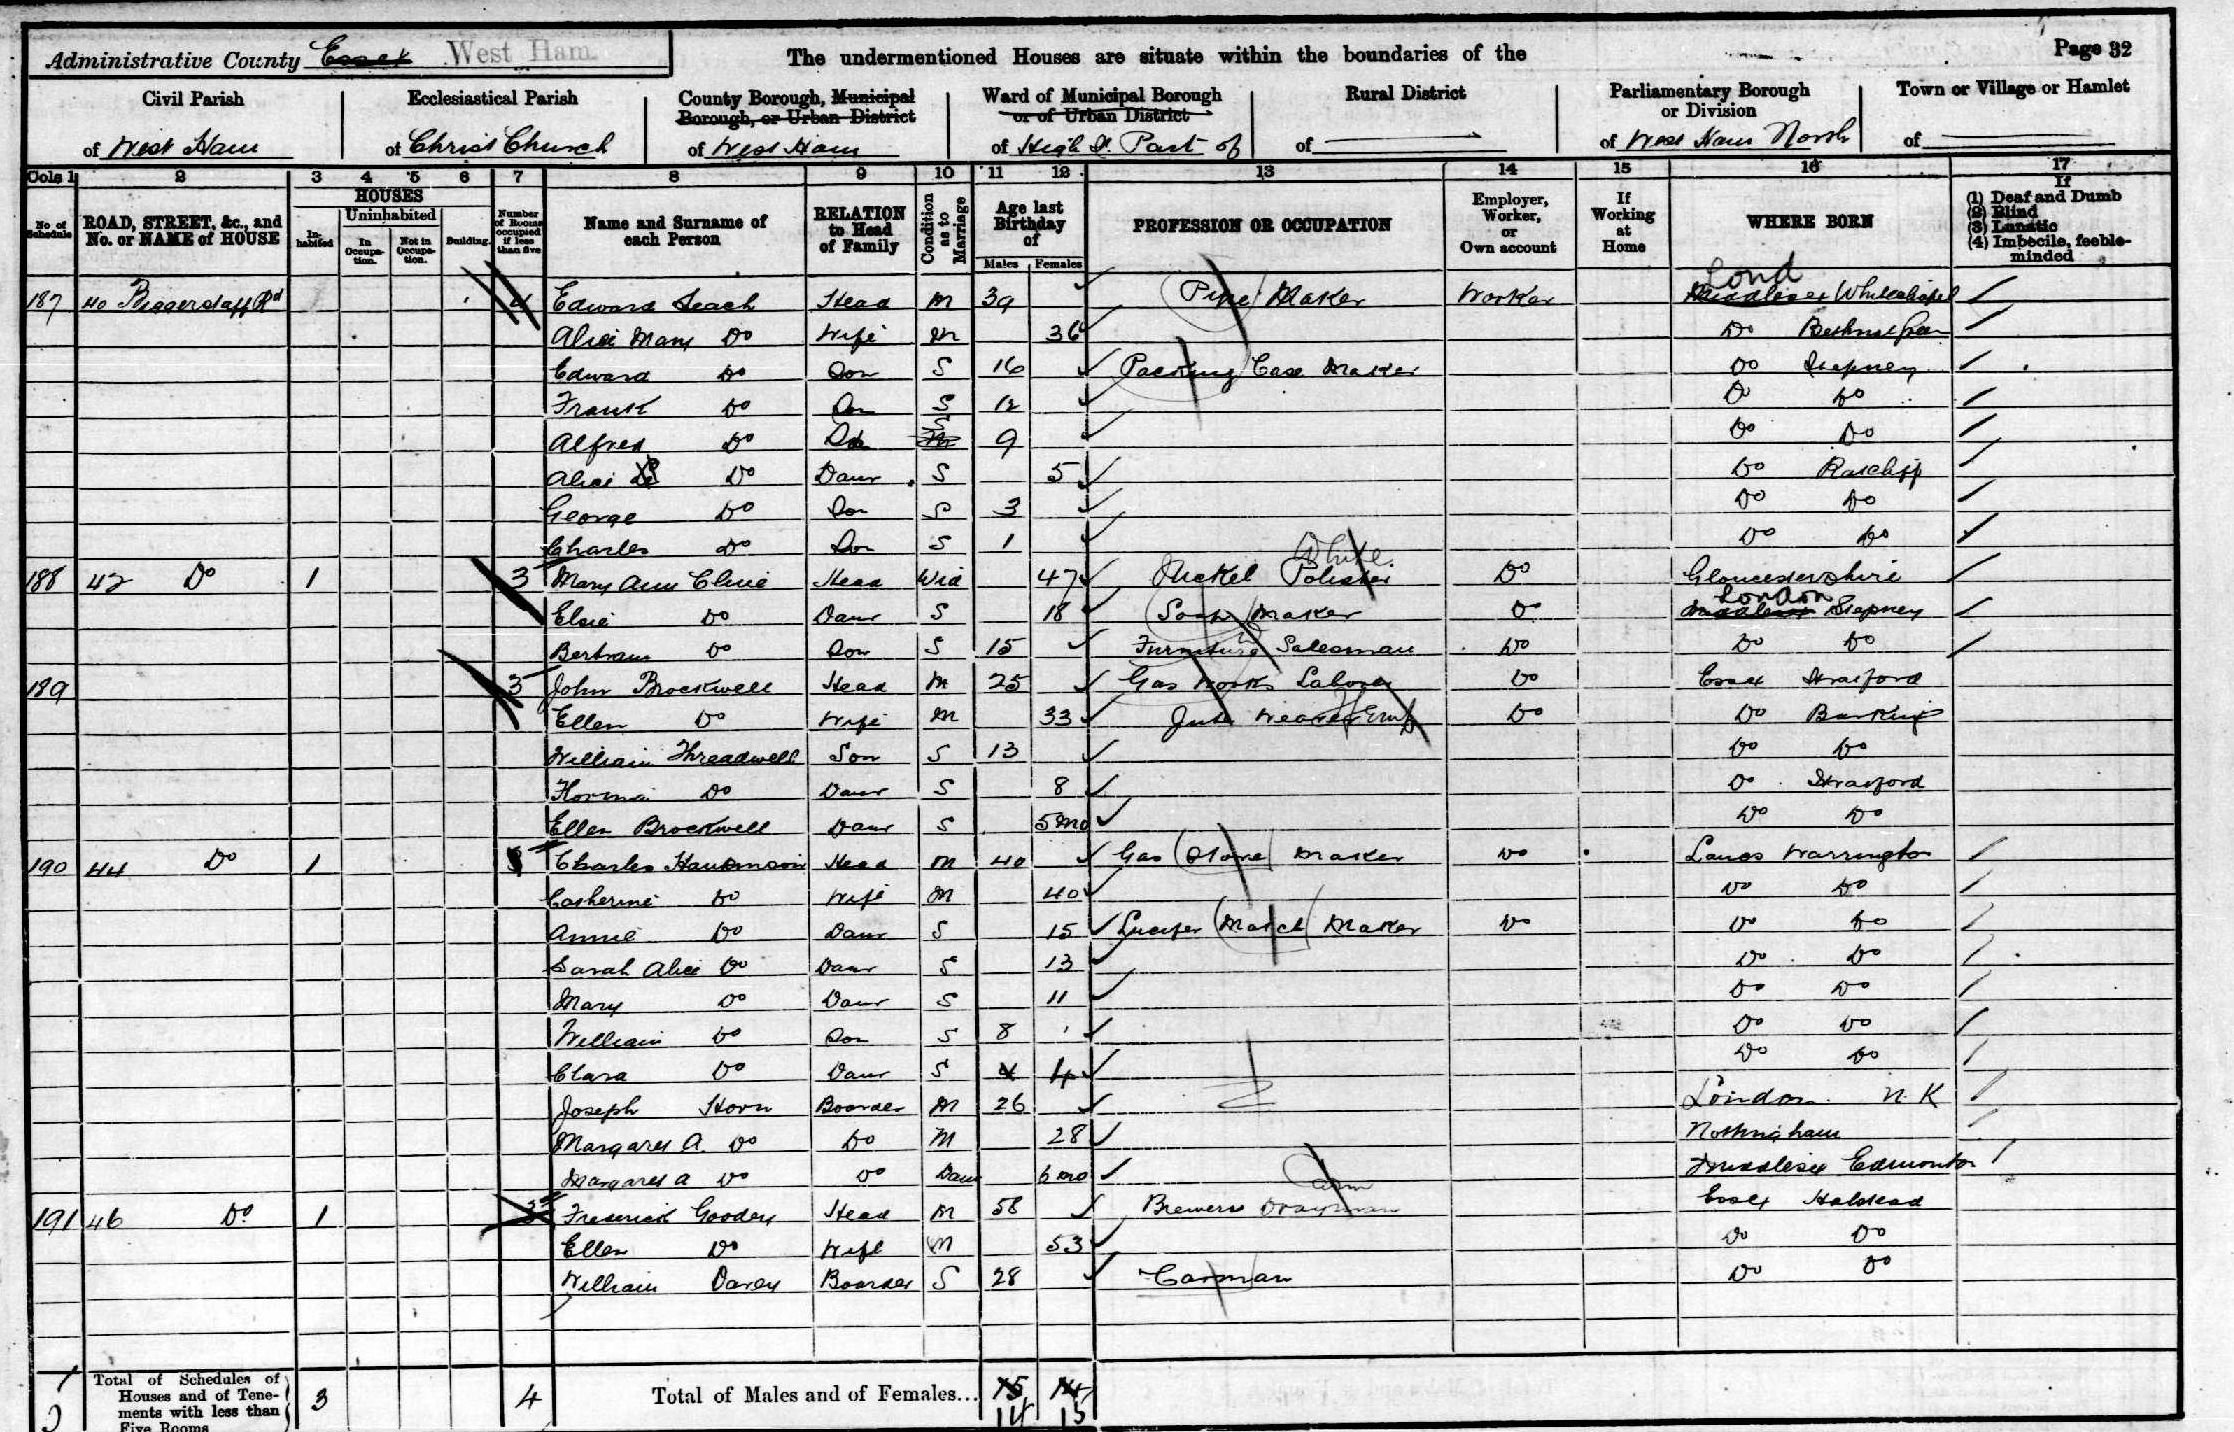 Administrative County Essex West Ham.
The undermentioned Houses are situate within the boundaries of the
Page 32
Civil Parish
of West Ham
Ecclesiastical Parish
of Christ Church
County Borough, Municipal
Borough, or Urban District
of West Ham
Ward of Municipal Borough
or of Urban District
of High St. Part of
Rural District
of
Parliamentary Borough
or Division
of West Ham North
Town or Village or Hamlet
of
Cols 1 2 3 4 5 6 7 8 9 10 11 12 13 14 15 16 17
No. of Schedule
ROAD, STREET, &c., and No. or NAME of HOUSE
HOUSES
Inhabited
Uninhabited
In Occupation.
Not in Occupation.
Building.
Number of Rooms occupied if less than five
Name and Surname of each Person
RELATION to Head of Family
Condition as to Marriage
Age last Birthday of
Males Females
PROFESSION OR OCCUPATION
Employer, Worker, or Own account
If Working at Home
WHERE BORN
If
(1) Deaf and Dumb
(2) Blind
(3) Lunatic
(4) Imbecile, feeble-minded
187 40 Biggerstaff Rd 4 Edward Leach Head M 39 Maker Worker Lond Middlesex Whitechapel
Alice Mary Do Wife M 36 Do Bethnal Green
Edward Do Son S 16 Packing Case Maker Do Stepney
Frank Do Son S 12 Do Do
Alfred Do Do S M 9 Do Do
Alice Do Daur S 5 Do Ratcliff
George Do Son S 3 Do Do
Charles Do Son S 1 Do Do
188 42 Do 1 3 Mary Ann Cline Head Wid 47 Nickel Polisher Do Gloucestershire
Elsie Do Daur S 18 Soap Maker Do London Middlesex Stepney
Bertram Do Son S 15 Furniture Salesman Do Do Do
189 3 John Brockwell Head M 25 Gas Works Laborer Do Essex Stratford
Ellen Do Wife M 33 Jute Weaver Do Do Barking
William Threadwell Son S 13 Do Do
Do Daur S 8 Do Stratford
Ellen Brockwell Daur S 5 mo Do Do
190 44 Do 1 Charles Head M 40 Gas Stove Maker Do Lancs Warrington
Catherine Do Wife M 40 Do Do
Annie Do Daur S 15 Lucifer Match Maker Do Do Do
Sarah Alice Do Daur S 13 Do Do
Mary Do Daur S 11 Do Do
William Do Son S 8 Do Do
Clara Do Daur S 4 4 Do Do
Joseph Horn Boarder M 26 London N. K
Margaret A. Do Do M 28 Nottingham
Margaret A Do Do Daur 6 mo Middlesex Edmonton
191 46 Do 1 3 Frederick Goodey Head M 58 Brewers Drayman Essex Halstead
Ellen Do Wife M 53 Do Do
William Davey Boarder S 28 Carman Do Do
Total of Schedules of
Houses and of Tene-
ments with less than
Five Rooms
3 4
Total of Males and of Females... 15 14
14 15